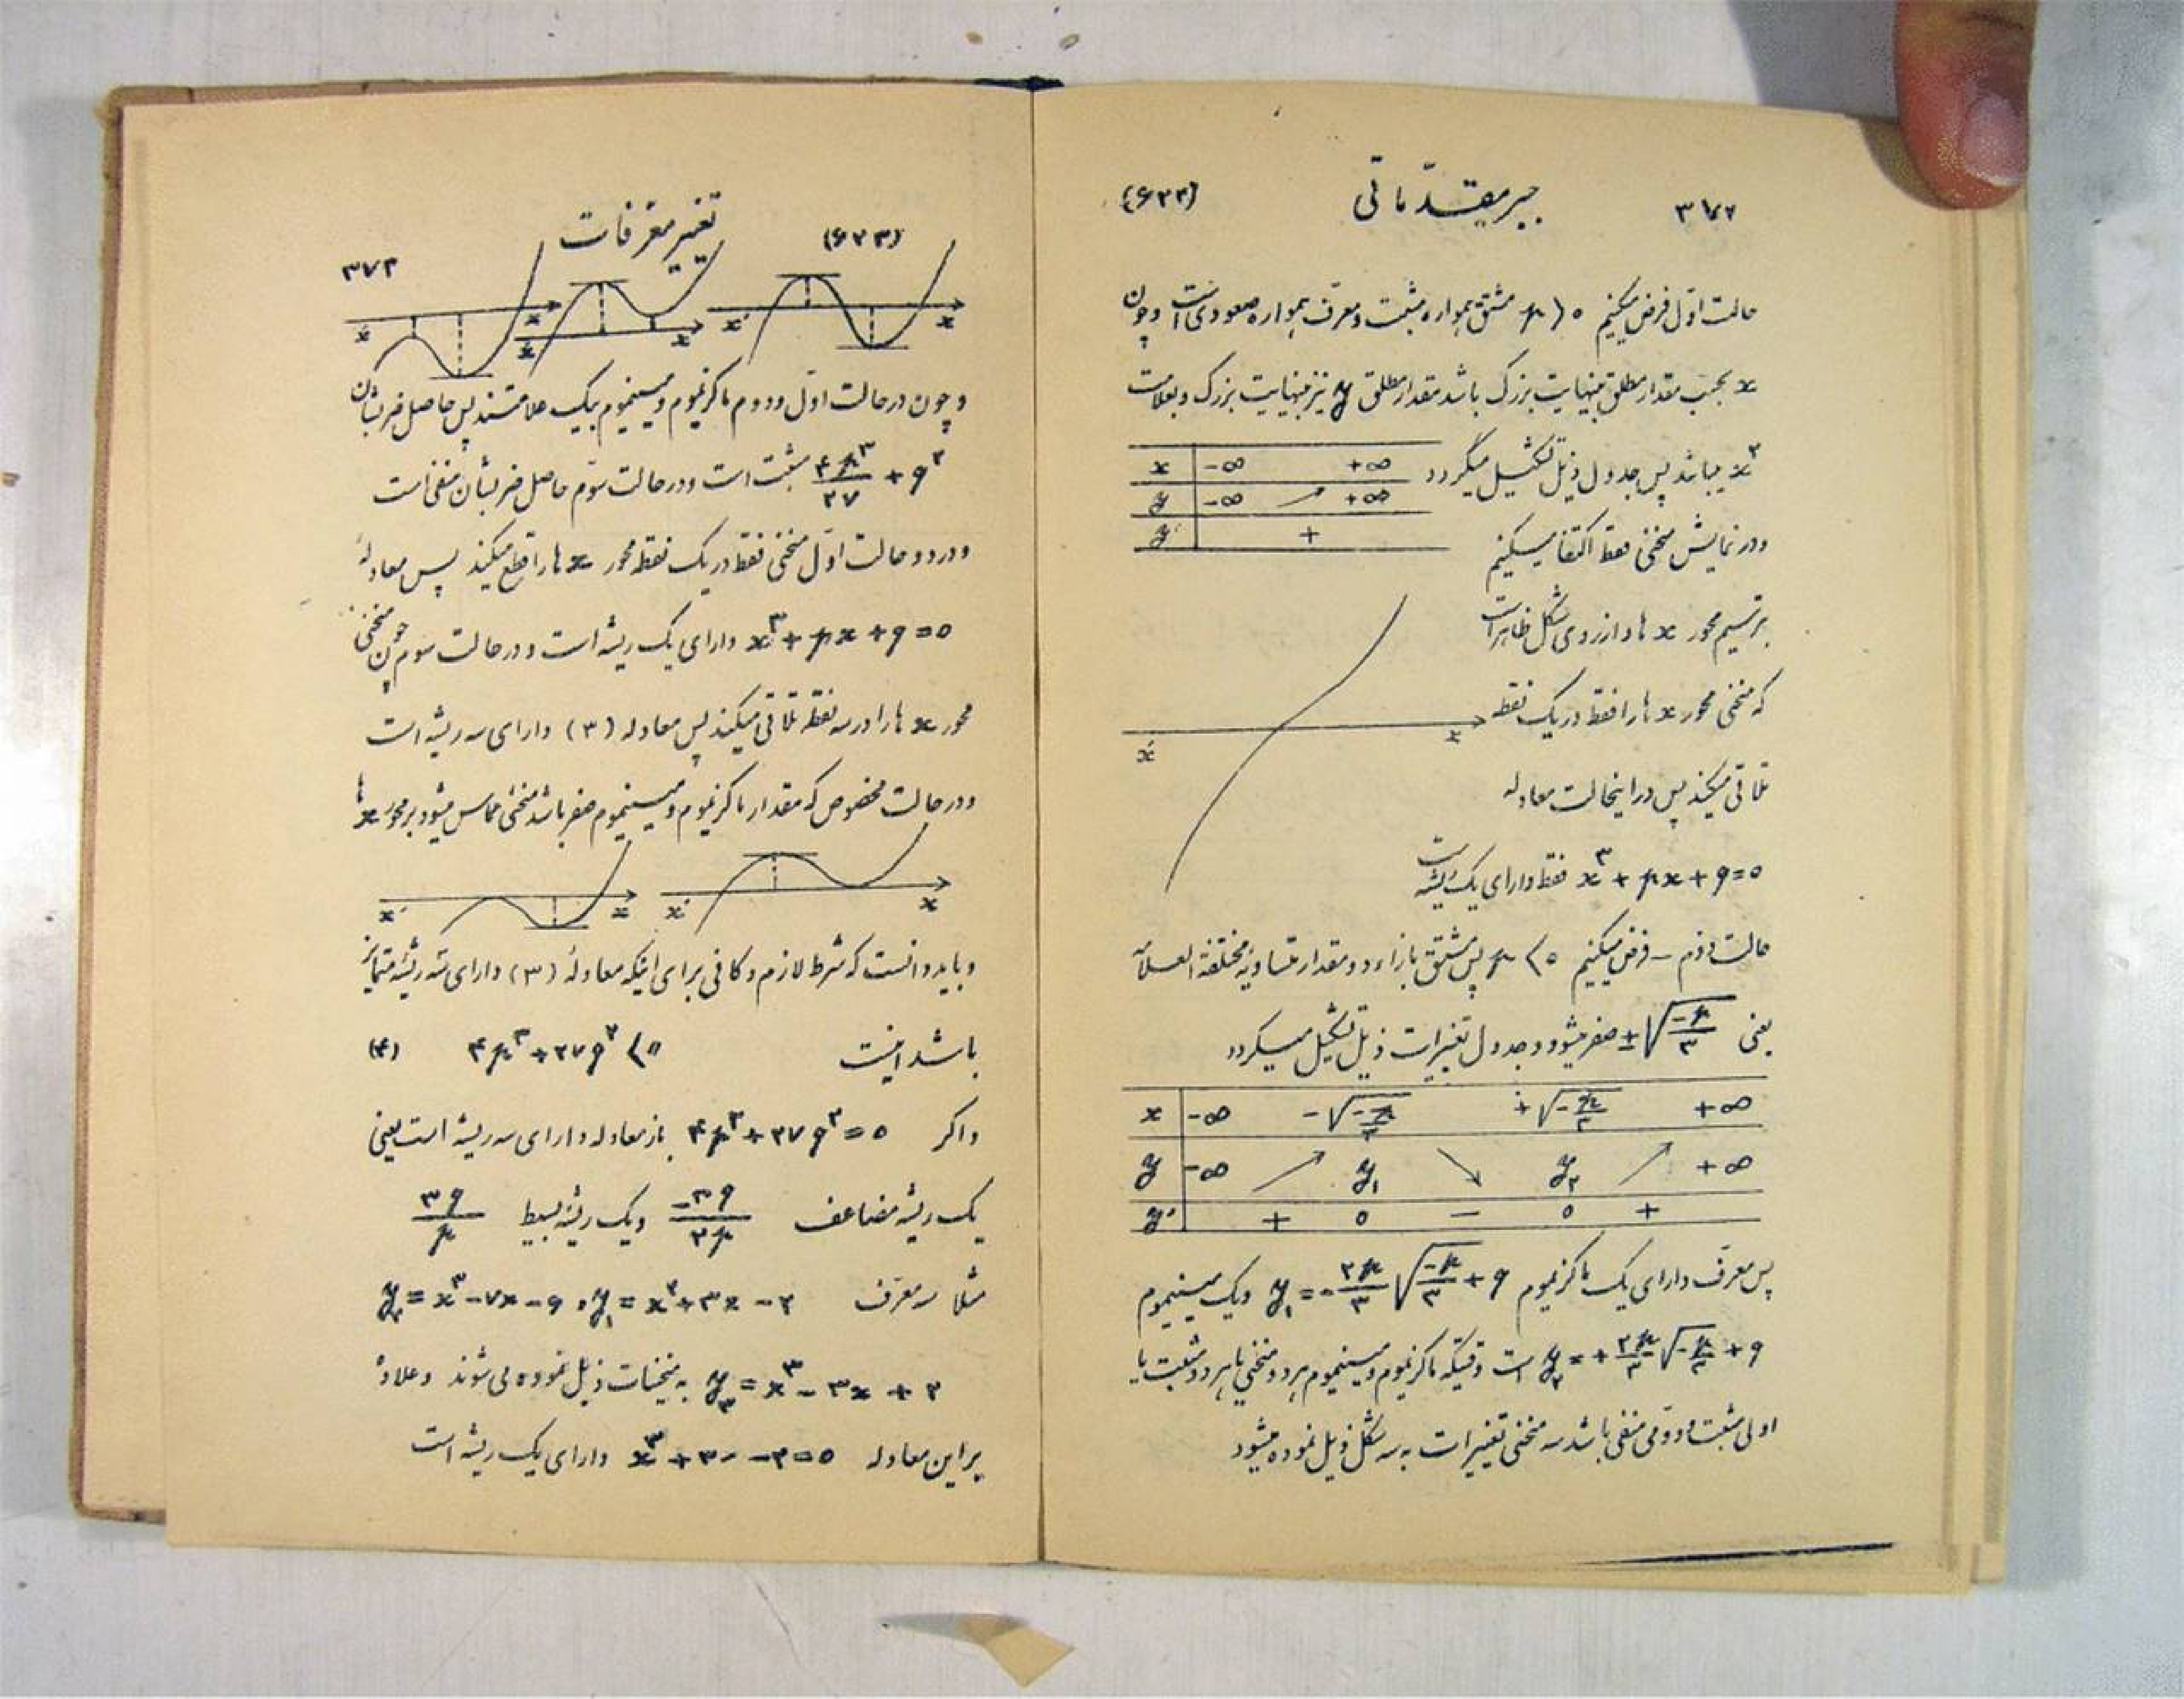 (۶۲۳) جبر مقدّماتی ۳۷۲
حالت اوّل فرض میکنیم p > ۰ مشتق همواره مثبت و معرف همواره صعودی است و چون
x بحسب مقدار مطلق بینهایت بزرگ باشد مقدار مطلق y نیز بینهایت بزرگ و بعلامت
x³ میباشد پس جدول ذیل تشکیل میگردد
x -∞ +∞
y -∞ ↗ +∞
y' +
و در نمایش منحنی فقط اکتفا میکنیم
بترسیم محور x ها و از روی شکل ظاهر است
که منحنی محور x ها را فقط در یک نقطه
تلاقی میکند پس در اینحالت معادله
x' x
x³ + px + q = ۰ فقط دارای یک ریشه است
حالت دوّم - فرض میکنیم p < ۰ پس مشتق بازاء دو مقدار متساویه مختلفة العلامه
یعنی ±√(-p/۳) صفر میشود و جدول تغییرات ذیل تشکیل میگردد
x -∞ -√(-p/۳) +√(-p/۳) +∞
y -∞ ↗ y₁ ↘ y₂ ↗ +∞
y' + ۰ - ۰ +
پس معرف دارای یک ماکزیموم y₁ = -۲p/۳ √(-p/۳) + q و یک مینیموم
y₂ = +۲p/۳ √(-p/۳) + q است وقتیکه ماکزیموم و مینیموم هر دو منفی یا هر دو مثبت یا
اولی مثبت و دوّمی منفی باشد سه منحنی تغییرات به سه شکل ذیل نموده میشود
۳۷۳ تغییر معرفات (۶۲۳)
x' x x' x x' x
و چون در حالت اوّل و دوم ماکزیموم و مینیموم بیک علامتند پس حاصل ضربشان
۴p³/۲۷ + q² مثبت است و در حالت سوّم حاصل ضربشان منفی است
و در دو حالت اوّل منحنی فقط در یک نقطه محور x ها را قطع میکند پس معادلهٔ
x³ + px + q = ۰ دارای یک ریشه است و در حالت سوم چون منحنی
محور x ها را در سه نقطه تلاقی میکند پس معادله (۳) دارای سه ریشه است
و در حالت مخصوص که مقدار ماکزیموم و مینیموم صفر باشد منحنی مماس میشود بر محور x ها
x' x x' x
و باید دانست که شرط لازم و کافی برای اینکه معادلهٔ (۳) دارای سه ریشهٔ متمایز
باشد اینست ۴p³ + ۲۷q² < ۰ (۴)
و اگر ۴p³ + ۲۷q² = ۰ باز معادله دارای سه ریشه است یعنی
یک ریشه مضاعف -۳q/۲p و یک ریشهٔ بسیط ۳q/p
مثلا سه معرف y₁ = x³ + ۳x - ۲ , y₂ = x³ - ۷x - ۶
y₃ = x³ - ۳x + ۲ به منحنیات ذیل نموده می شوند و علاوه
بر این معادله x³ + ۳ - -۲ = ۰ دارای یک ریشه است